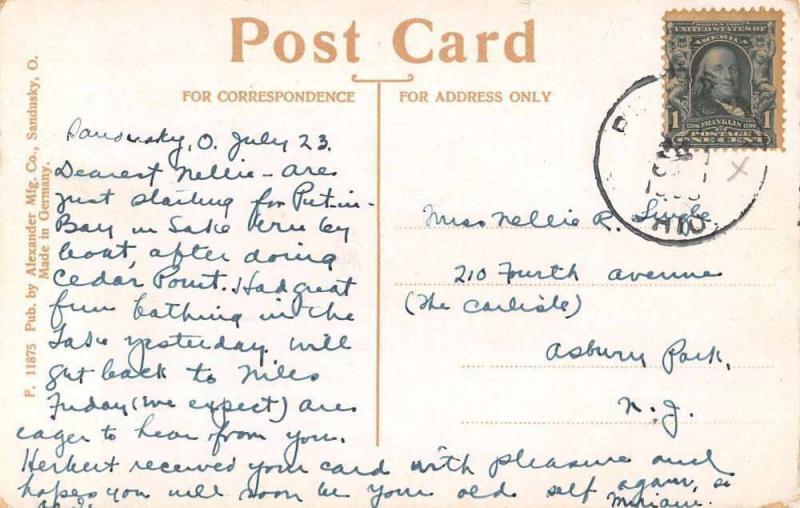 Post Card
FOR CORRESPONDENCE
FOR ADDRESS ONLY
F. 11875 Pub. by Alexander Mfg. Co., Sandusky, O.
Made in Germany.
SERIES 1902
UNITED STATES OF
AMERICA
1 1
1706 FRANKLIN 1790
POSTAGE
ONE CENT
OHIO
Sandusky, O. July 23.
Dearest Nellie - are
just starting for Put-in-
Bay in Lake Erie by
boat, after doing
Cedar Point. Had great
fun bathing in the
Lake yesterday. Will
get back to Niles
Friday (we expect) are
eager to hear from you.
Herbert received your card with pleasure and
hopes you will soon be your old self again, as
Miriam.
Miss Nellie R.
210 Fourth avenue
(The Carlisle)
Asbury Park,
N. J.